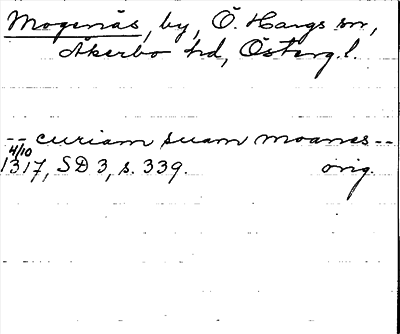 Mogenäs, by, Ö. Hargs sn,
Åkerbo hd, Österg.l.
-- curiam suam moanes --
4/10
1317, SD 3, s. 339. orig.